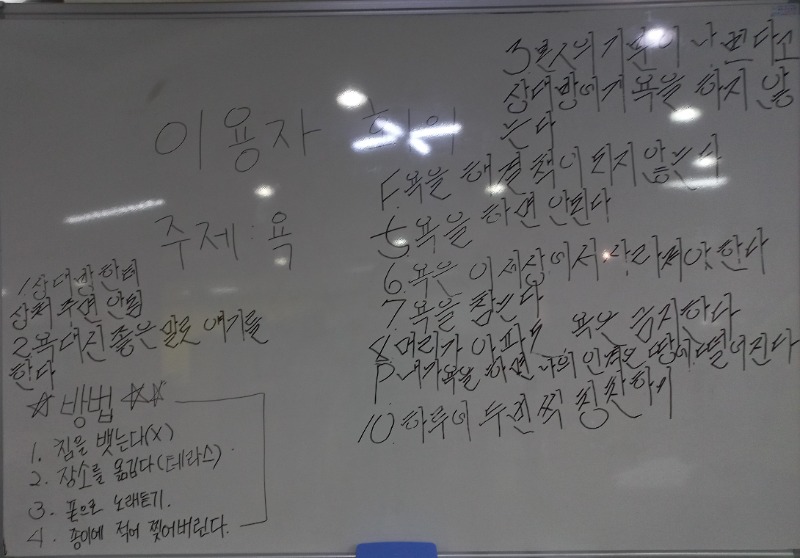 이용자 회의
주제: 욕
1 상대방한테
상처주면 안됨
2 욕대신 좋은 말로 얘기를
한다
3 본인의 기분이 나쁘다고
상대방에게 욕을 하지 않
는다
4. 욕을 해결책이 되지 않는다
5. 욕을 하면 안된다
6. 욕은 이 세상에서 사라져야 한다
7. 욕을 참는다
8. 머리가 아파도 욕은 금지한다
9 내가 욕을 하면 나의 인격은 땅에 떨어진다
10. 하루에 두번씩 칭찬하기
☆방법☆☆
1. 침을 뱃는다(X)
2. 장소를 옮긴다(테라스)
3. 폰으로 노래듣기.
4. 종이에 적어 찢어버린다.